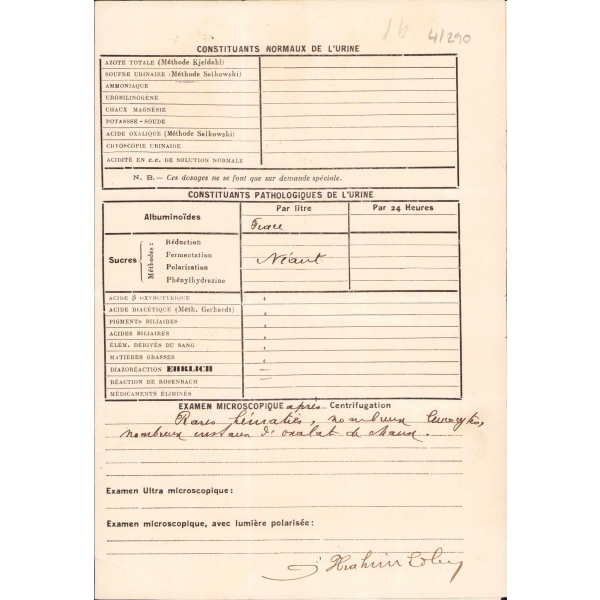 1b 4/290
CONSTITUANTS NORMAUX DE L'URINE
AZOTE TOTALE (Méthode Kjeldahl)
SOUFRE URINAIRE (Méthode Saikowski)
AMMONIAQUE
UROBILINOGÈNE
CHAUX MAGNÉSIE
POTASSE - SOUDE
ACIDE OXALIQUE (Méthode Saikowski)
CRYOSCOPIE URINAIRE
ACIDITÉ EN c.c. DE SOLUTION NORMALE
N. B.— Ces dosages ne se font que sur demande spéciale.
CONSTITUANTS PATHOLOGIQUES DE L'URINE
Par litre Par 24 Heures
Albuminoïdes Trace
Sucres Méthodes :
Réduction
Fermentation Néant
Polarisation
Phénylhydrazine
ACIDE β OXYBUTYRIQUE
ACIDE DIACÉTIQUE (Méth. Gerhardt)
PIGMENTS BILIAIRES
ACIDES BILIAIRES
ÉLÉM. DÉRIVÉS DU SANG
MATIÈRES GRASSES
DIAZORÉACTION EHRLICH —
RÉACTION DE ROSENBACH —
MÉDICAMENTS ÉLIMINÉS
EXAMEN MICROSCOPIQUE après Centrifugation
Rares hématies, nombreux leucocytes,
nombreux cristaux d'oxalat de chaux.
Examen Ultra microscopique :
Examen microscopique, avec lumière polarisée :